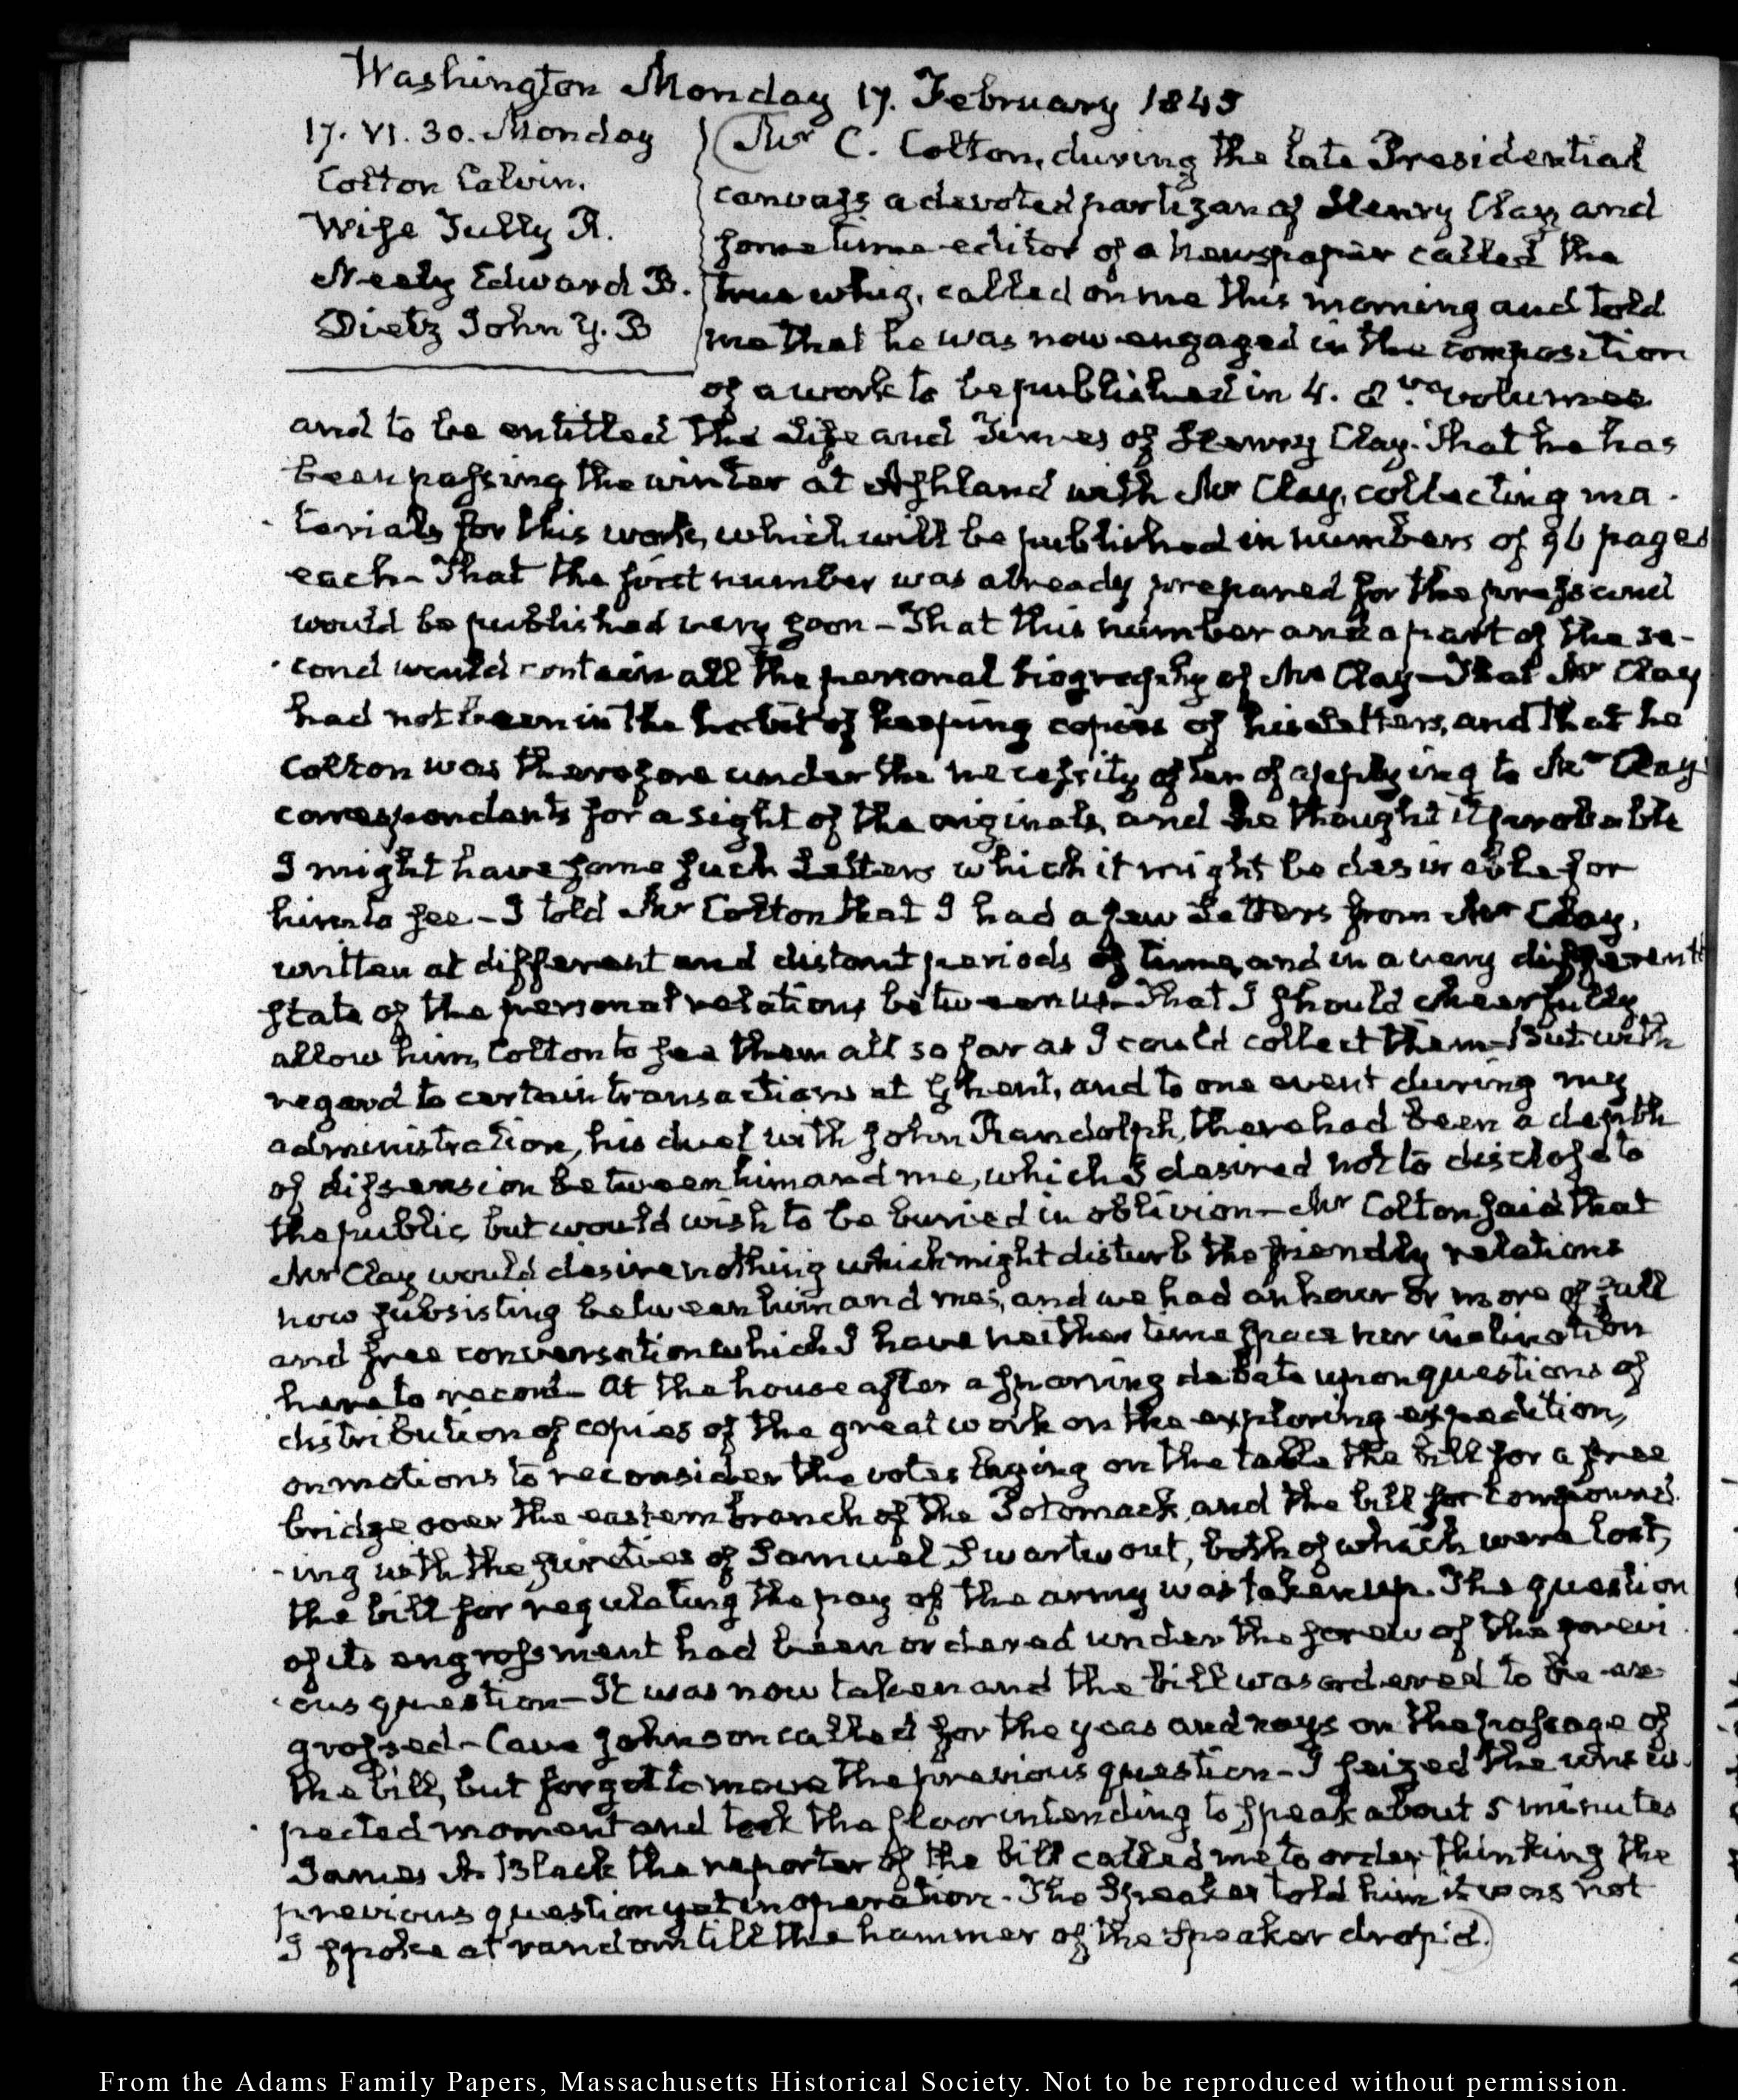 Washington Monday 17. February 1845
17. VI. 30. Monday
Colton Calvin.
Wise Tully R.
Neely Edward B.
Dietz John Y. B
Mr C. Colton, during the late Presidential
canvass a devoted partizan of Henry Clay, and
some time editor of a Newspaper called the
true whig, called on me this morning and told
me that he was now engaged in the composition
of a work to be published in 4. 8.vo volumes
and to be entitled The Life and Times of Henry Clay. That he has
been passing the winter at Ashland with Mr Clay, collecting ma-
terials for this work, which will be published in numbers of 96 pages
each– That the first number was already prepared for the press and
would be published very soon – That this number and a part of the se-
cond would contain all the personal biography of Mr Clay– That Mr Clay
had not been in the habit of keeping copies of his Letters, and that he
Colton was therefore under the necessity often of applying to Mr Clay's
correspondents for a sight of the originals, and he thought it probable
I might have some such Letters which it might be desirable for
him to see – I told Mr Colton that I had a few Letters from Mr Clay,
written at different and distant periods of time, and in a very different
state of the personal relations between us– That I should cheerfully
allow him, Colton to see them all so far as I could collect them– But with
regard to certain transactions at Ghent, and to one event during my
administration, his duel with John Randolph, there had been a depth
of dissension between him and me, which I desired not to disclose to
the public, but would wish to be buried in oblivion– Mr Colton said that
Mr Clay would desire nothing which might disturb the friendly relations
now subsisting between him and me, and we had an hour or more of full
and free conversation which I have neither time space nor inclination
here to record– At the house after a sparring debate upon questions of
distribution of copies of the great work on the exploring expedition,
on motions to reconsider the votes laying on the table the bill for a free
bridge over the eastern branch of the Potomack, and the bill for compound-
ing with the sureties of Samuel Swartwout, both of which were lost,
the bill for regulating the pay of the army was taken up. The question
of its engrossment had been ordered under the screw of the previ-
ous question– It was now taken and the bill was ordered to be en-
grossed– Cave Johnson called for the yeas and nays on the passage of
the bill, but forgot to move the previous question– I seized the unex-
pected moment and took the floor intending to speak about 5 minutes
James A. Black the reporter of the bill called me to order thinking the
previous question yet in operation– The Speaker told him it was not
I spoke at random till the hammer of the Speaker drop'd.
From the Adams Family Papers, Massachusetts Historical Society. Not to be reproduced without permission.